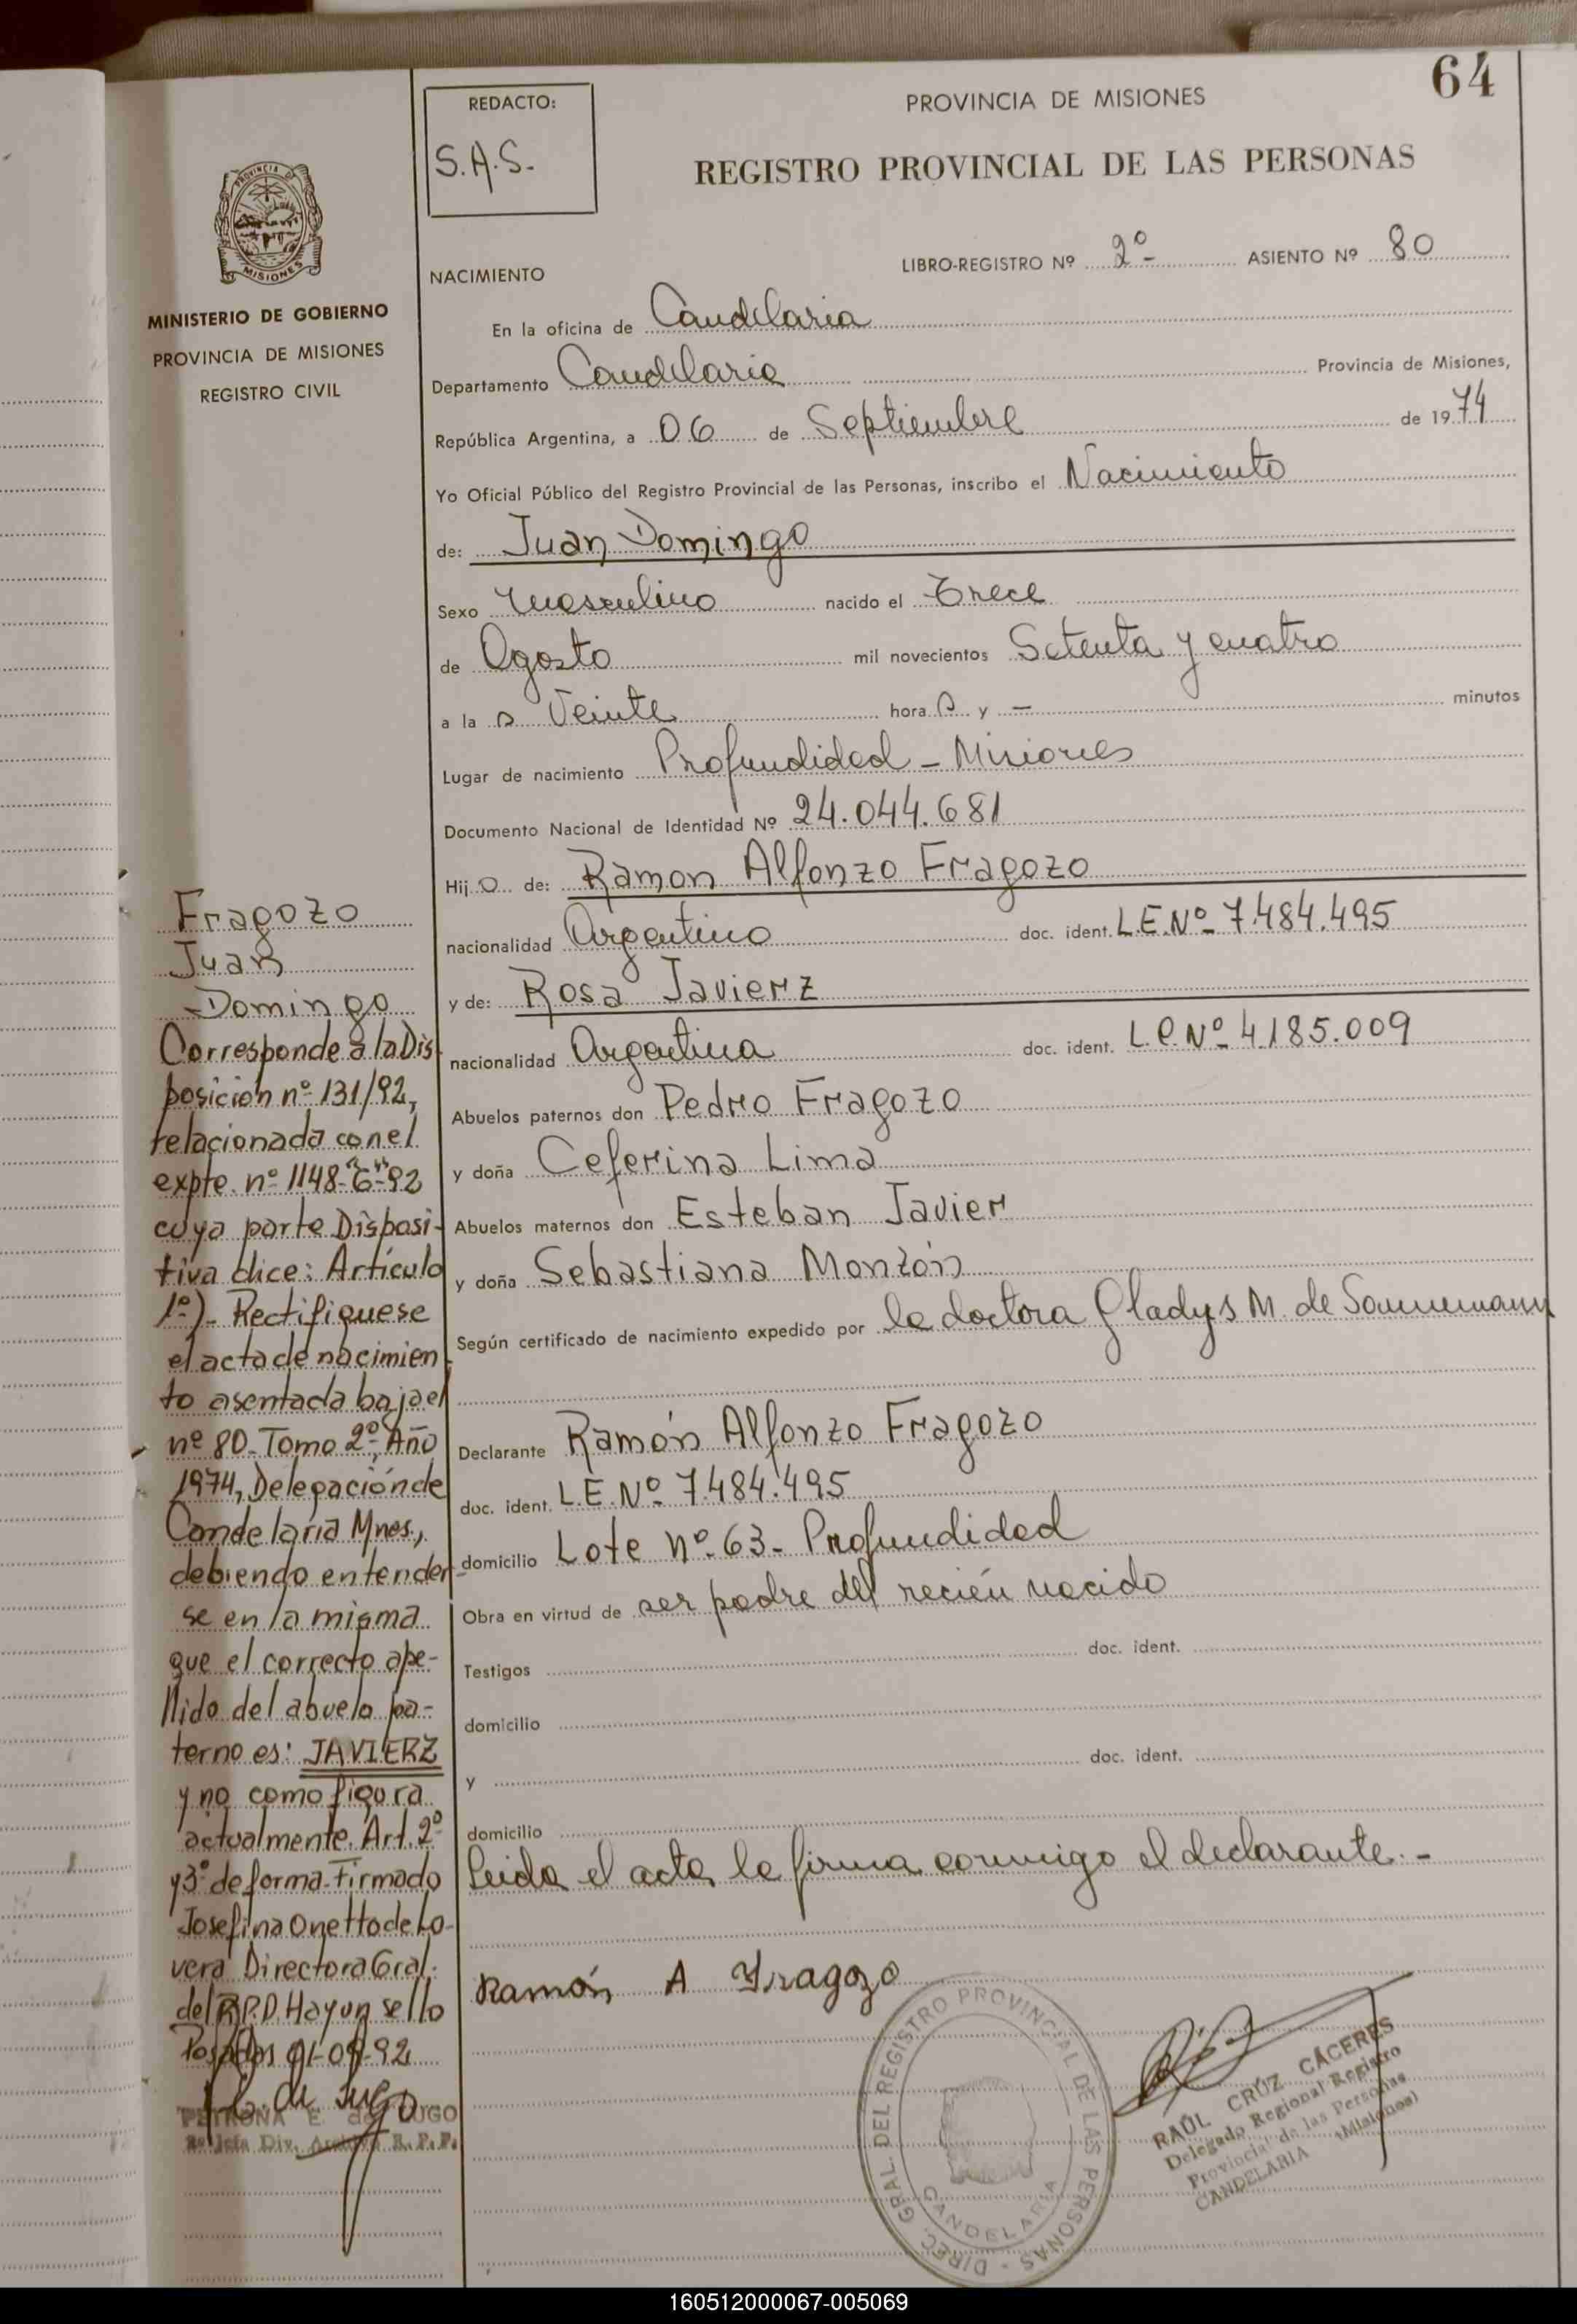 64
REDACTO:
S.A.S.-
PROVINCIA DE MISIONES
REGISTRO PROVINCIAL DE LAS PERSONAS
PROVINCIA DE
MISIONES
MINISTERIO DE GOBIERNO
PROVINCIA DE MISIONES
REGISTRO CIVIL
LIBRO-REGISTRO Nº 2º- ASIENTO Nº 80
NACIMIENTO
En la oficina de Candelaria
Departamento Candelaria Provincia de Misiones,
República Argentina, a 06 de Septiembre de 1974
Yo Oficial Público del Registro Provincial de las Personas, inscribo el Nacimiento
de: Juan Domingo
Sexo Masculino nacido el Trece
de Agosto mil novecientos Setenta y cuatro
a la s Veinte hora s y - minutos
Lugar de nacimiento Profundidad - Misiones
Documento Nacional de Identidad Nº 24.044.681
Hij o de: Ramon Alfonzo Fragozo
nacionalidad Argentino doc. ident. L.E.Nº 7.484.495
y de: Rosa Javierz
nacionalidad Argentina doc. ident. L.C.Nº 4.185.009
Abuelos paternos don Pedro Fragozo
y doña Ceferina Lima
Abuelos maternos don Esteban Javier
y doña Sebastiana Monzón
Según certificado de nacimiento expedido por la doctora Gladys M. de Sommemann
Declarante Ramón Alfonzo Fragozo
doc. ident. L.E.Nº 7.484.495
domicilio Lote nº 63- Profundidad
Obra en virtud de ser padre del recién nacido
Testigos doc. ident.
domicilio
y doc. ident.
domicilio
Leida el acta, la firma conmigo el declarante.-
Ramón A Fragozo
DIREC. GRAL. DEL REGISTRO PROVINCIAL DE LAS PERSONAS -
CANDELARIA
RAÚL CRUZ CÁCERES
Delegado Regional Registro
Provincial de las Personas
CANDELARIA (Misiones)
Fragozo
Juan
Domingo
Corresponde a la Dis-
posición nº 131/92,
relacionada con el
expte. nº 1148-"G"-92
cuya parte Disposi-
tiva dice: Artículo
1º)- Rectifíquese
el acta de nacimien-
to asentada bajo el
nº 80-Tomo 2º, Año
1974, Delegación de
Candelaria Mnes.,
debiendo entender-
se en la misma
que el correcto ape-
llido del abuelo pa-
terno es: JAVIERZ
y no como figura
actualmente. Art. 2º
y 3º de forma-Firmado
Josefina Onetto de Lo-
vera Directora Gral.
del R.P.P. Hay un sello
Posadas 01-09-92
PETRONA E. de LUGO
Jefa Div. Archivo R.P.P.
160512000067-005069